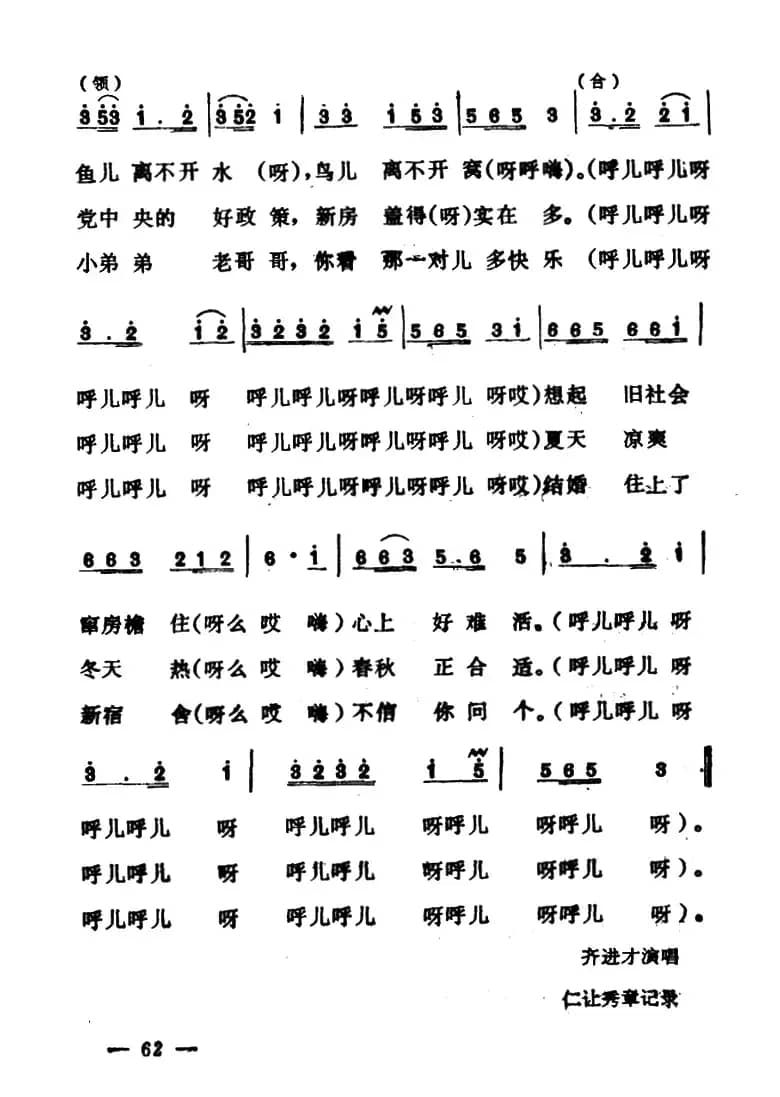 (领) (合)
3 5 3 1 . 2 | 3 5 2 1 | 3 3 1 5 3 | 5 6 5 3 | 3 . 2 2 1 |
鱼儿 离不开 水 (呀),鸟儿 离不开 窝(呀呼嗨)。(呼儿呼儿呀
党中 央的 好政 策,新房 盖得(呀)实在 多。(呼儿呼儿呀
小弟 弟 老哥 哥,你看 那一对儿 多快 乐 (呼儿呼儿呀
3 . 2 1 2 | 3 2 3 2 1 5 | 5 6 5 3 1 | 6 6 5 6 6 1 |
呼儿呼儿 呀 呼儿呼儿呀呼儿呀呼儿 呀哎)想起 旧社会
呼儿呼儿 呀 呼儿呼儿呀呼儿呀呼儿 呀哎)夏天 凉爽
呼儿呼儿 呀 呼儿呼儿呀呼儿呀呼儿 呀哎)结婚 住上了
6 6 3 2 1 2 | 6 · 1 | 6 6 3 5 . 6 5 | 3 . 2 1 |
窜房檐 住(呀么 哎 嗨)心上 好难 活。(呼儿呼儿 呀
冬天 热(呀么 哎 嗨)春秋 正合 适。(呼儿呼儿 呀
新宿 舍(呀么 哎 嗨)不信 你问 个。(呼儿呼儿 呀
3 . 2 1 | 3 2 3 2 1 5 | 5 6 5 3 ‖
呼儿呼儿 呀 呼儿呼儿 呀呼儿 呀呼儿 呀)。
呼儿呼儿 呀 呼儿呼儿 呀呼儿 呀呼儿 呀)。
呼儿呼儿 呀 呼儿呼儿 呀呼儿 呀呼儿 呀)。
齐进才演唱
仁让秀章记录
— 62 —